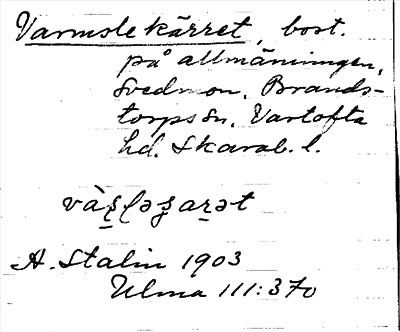 Varmslekärret, bost.
på allmänningen,
Svedmon, Brands-
torps sn, Vartofta
hd. Skarab. l.
A. Stalin 1903
Ulma 111:370